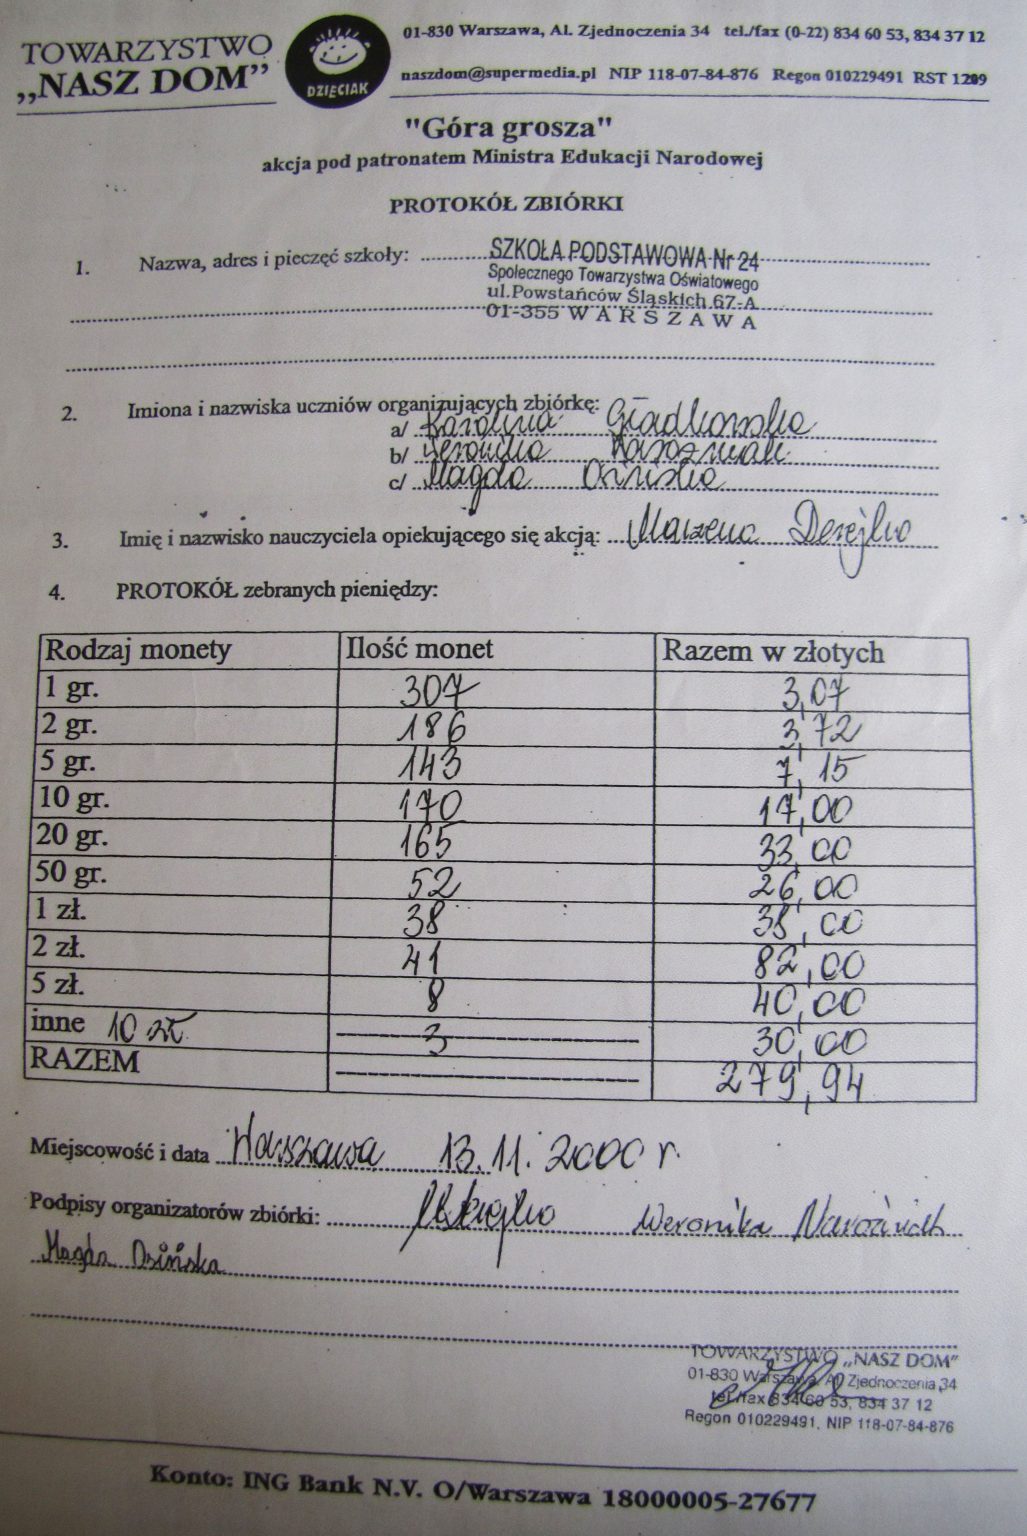 TOWARZYSTWO
„NASZ DOM”
DZIĘCIAK
01-830 Warszawa, Al. Zjednoczenia 34 tel./fax (0-22) 834 60 53, 834 37 12
naszdom@supermedia.pl NIP 118-07-84-876 Regon 010229491 RST 1209
"Góra grosza"
akcja pod patronatem Ministra Edukacji Narodowej
PROTOKÓŁ ZBIÓRKI
1. Nazwa, adres i pieczęć szkoły: SZKOŁA PODSTAWOWA Nr 24
Społecznego Towarzystwa Oświatowego
ul. Powstańców Śląskich 67-A
01-355 WARSZAWA
2. Imiona i nazwiska uczniów organizujących zbiórkę:
a/ Karolina Gładkowska
b/ Weronika
c/ Magda Osińska
3. Imię i nazwisko nauczyciela opiekującego się akcją: Marzena Derejko
4. PROTOKÓŁ zebranych pieniędzy:
Rodzaj monety Ilość monet Razem w złotych
1 gr. 307 3,07
2 gr. 186 3,72
5 gr. 143 7,15
10 gr. 170 17,00
20 gr. 165 33,00
50 gr. 52 26,00
1 zł. 38 38,00
2 zł. 41 82,00
5 zł. 8 40,00
inne 10 zł 3 30,00
RAZEM 279,94
Miejscowość i data Warszawa 13.11.2000 r.
Podpisy organizatorów zbiórki: Weronika
Magda Osińska
TOWARZYSTWO „NASZ DOM”
01-830 Warszawa, Al. Zjednoczenia 34
tel./fax 834 60 53, 834 37 12
Regon 010229491, NIP 118-07-84-876
Konto: ING Bank N.V. O/Warszawa 18000005-27677